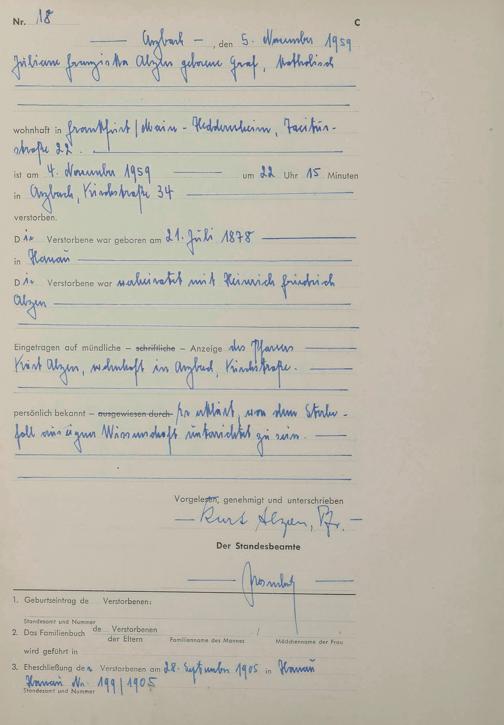 Nr. 18 C
Arzbach, den 5. November 1959
Juliane Franziska Alzen geborene Graf, katholisch
wohnhaft in Frankfurt/Main - Heddernheim, Tacitus-
straße 22.
ist am 4. November 1959 um 22 Uhr 15 Minuten
in Arzbach, Kirchstraße 34
verstorben.
Die Verstorbene war geboren am 21. Juli 1878
in Hanau
Die Verstorbene war verheiratet mit Heinrich Friedrich
Alzen
Eingetragen auf mündliche – schriftliche – Anzeige des Pfarrers
Kurt Alzen, wohnhaft in Arzbach, Kirchstraße.
persönlich bekannt – ausgewiesen durch Er erklärt, von dem Sterbe-
fall aus eigner Wissenschaft unterrichtet zu sein.
Vorgelesen, genehmigt und unterschrieben
Kurt Alzen, Pfr.
Der Standesbeamte
1. Geburtseintrag de Verstorbenen:
Standesamt und Nummer
2. Das Familienbuch de Verstorbenen
der Eltern
Familienname des Mannes Mädchenname der Frau
wird geführt in
3. Eheschließung der Verstorbenen am 28. September 1905 in Hanau
Hanau Nr. 199/1905
Standesamt und Nummer